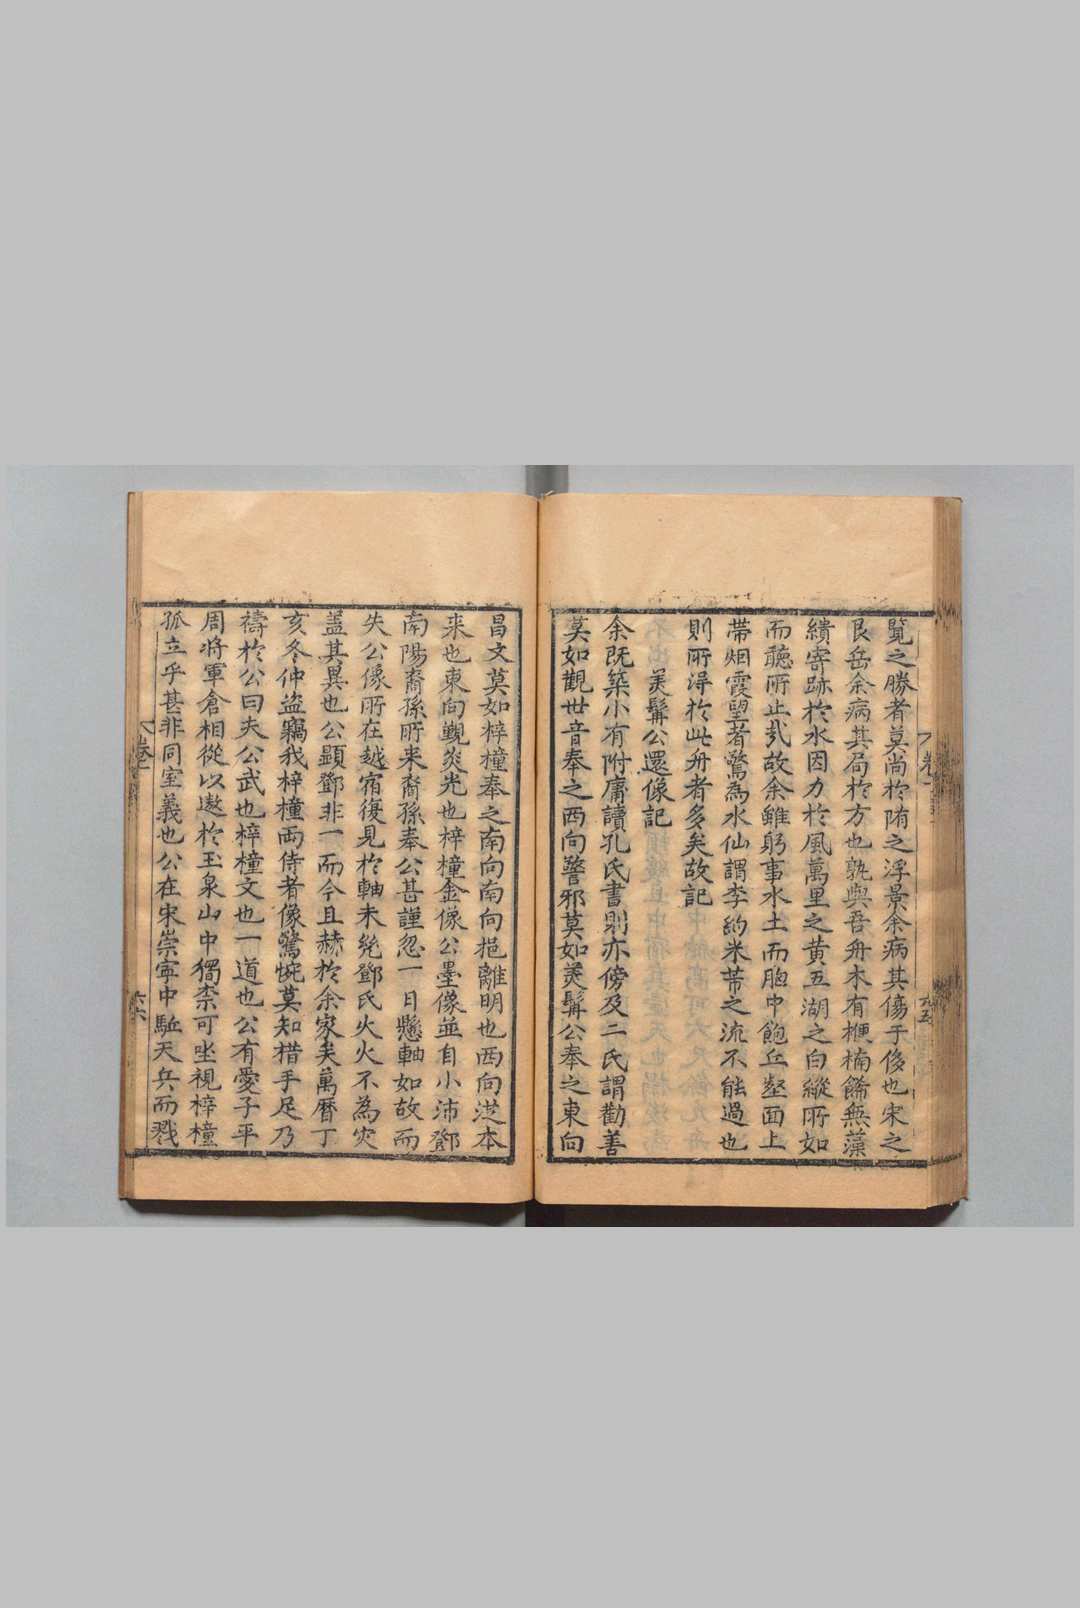 覽之勝者莫尚於陏之浮景余病其傷于侈也宋之
艮岳余病其局於方也孰與吾舟木有楩楠餙無藻
繢寄跡於水因力於風萬里之黄五湖之白縱所如
而聽所止㦲故余雖躬事水土而胸中飽丘壑面上
帶烟霞望者驚為水仙謂李約米芾之流不能過也
則所得於此舟者多矣故記
羙髯公還像記
余既築小有附庸讀孔氏書則亦傍及二氏謂勸善
莫如觀世音奉之西向警邪莫如羙髯公奉之東向
卷一
六五
昌文莫如梓橦奉之南向南向挹離明也西向遡本
来也東向觀炎光也梓橦金像公墨像並自小沛鄧
南陽裔孫所来裔孫奉公甚謹忽一日懸軸如故而
失公像所在越宿復見於軸未幾鄧氏火火不為灾
盖其異也公顕鄧非一而今且赫於余家矣萬曆丁
亥冬仲盗竊我梓橦両侍者像驚惋莫知措手足乃
禱於公曰夫公武也梓橦文也一道也公有愛子平
周將軍倉相從以遨於玉泉山中獨柰可坐視梓橦
孤立乎甚非同室義也公在宋崇寜中駈天兵而戮
卷一
六六